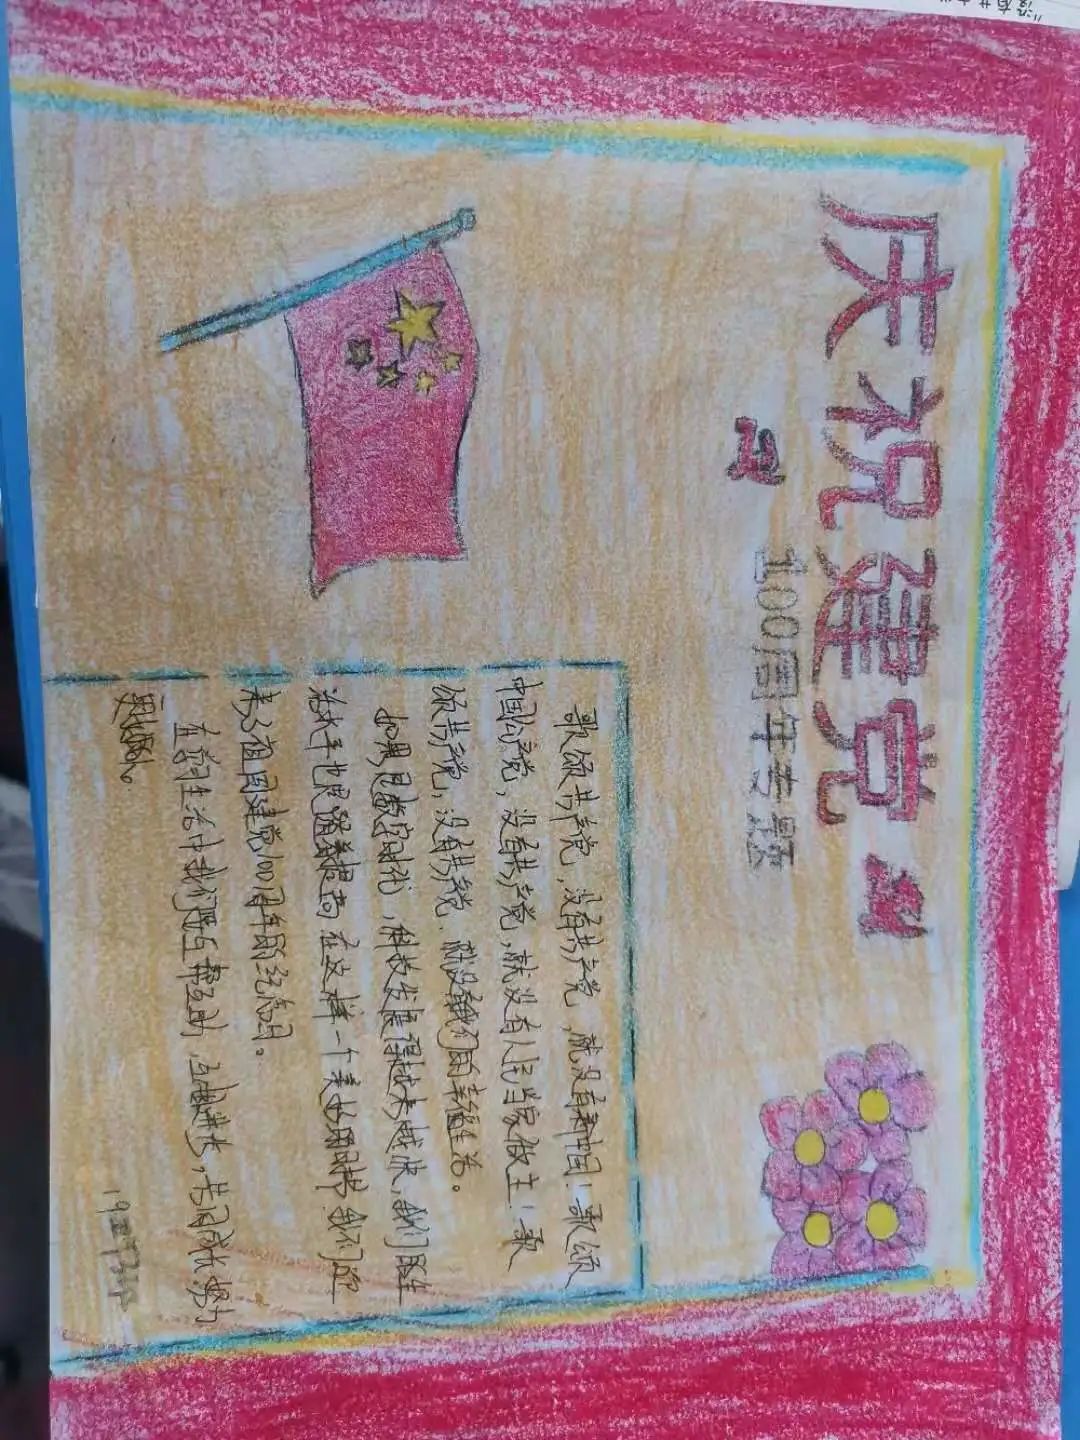 庆祝建党
100周年专题
歌颂共产党，没有共产党，就没有新中国！歌颂
中国共产党，没有共产党，就没有人民当家做主！歌
颂共产党，没有共产党，就没有我们的幸福生活。
如果是数字时代，科技发展得越来越快，我们的生
活水平也跟着提高 在这样一个美好的时代，我们迎
来了祖国建党100周年的纪念日。
在学习生活中我们要互帮互助，互相进步，共同成长
更